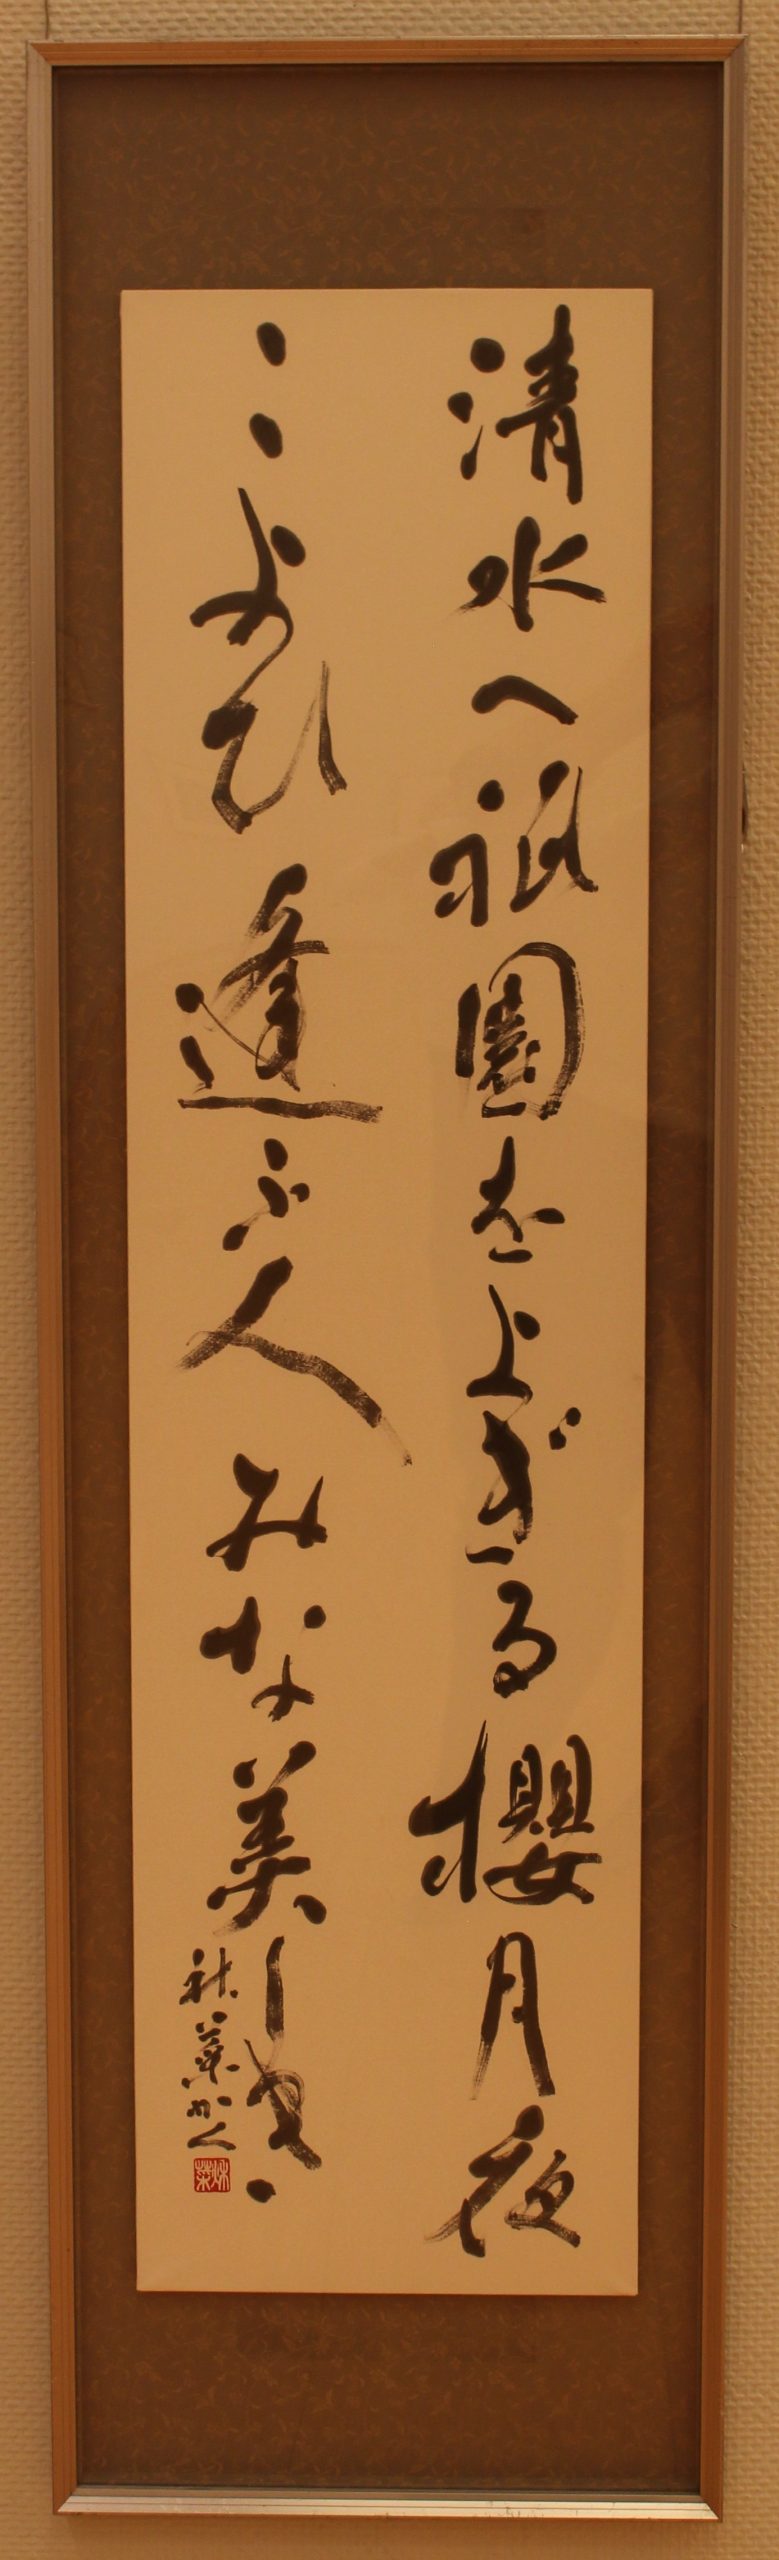 清水へ祇園をよぎる櫻月夜
こよひ逢ふ人みな美しき
秋葉かく
秋葉